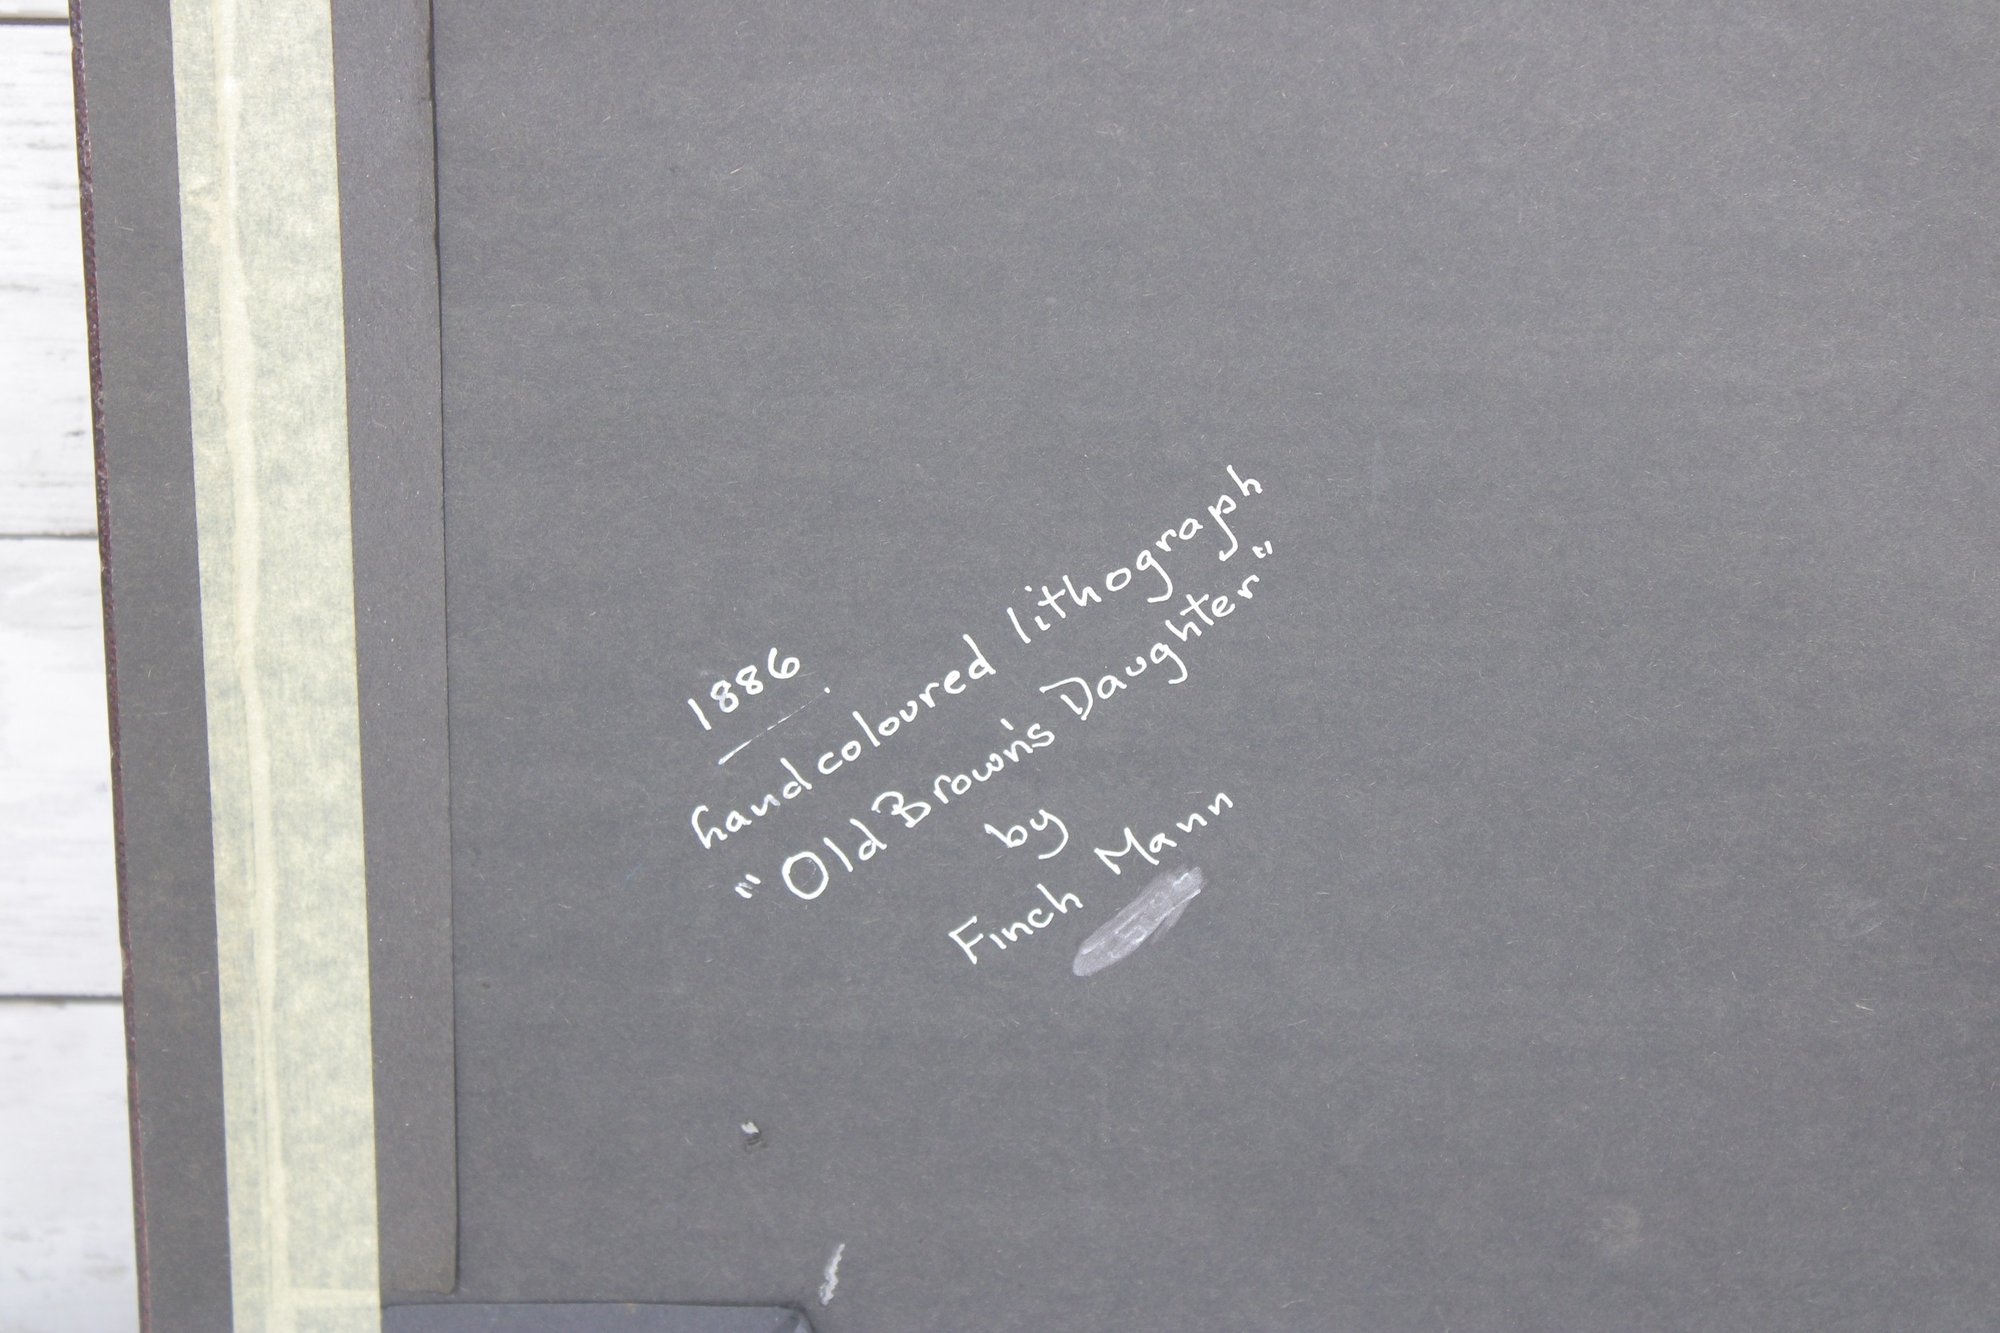 1886
handcoloured lithograph
"Old Brown's Daughter"
by
Finch Mann